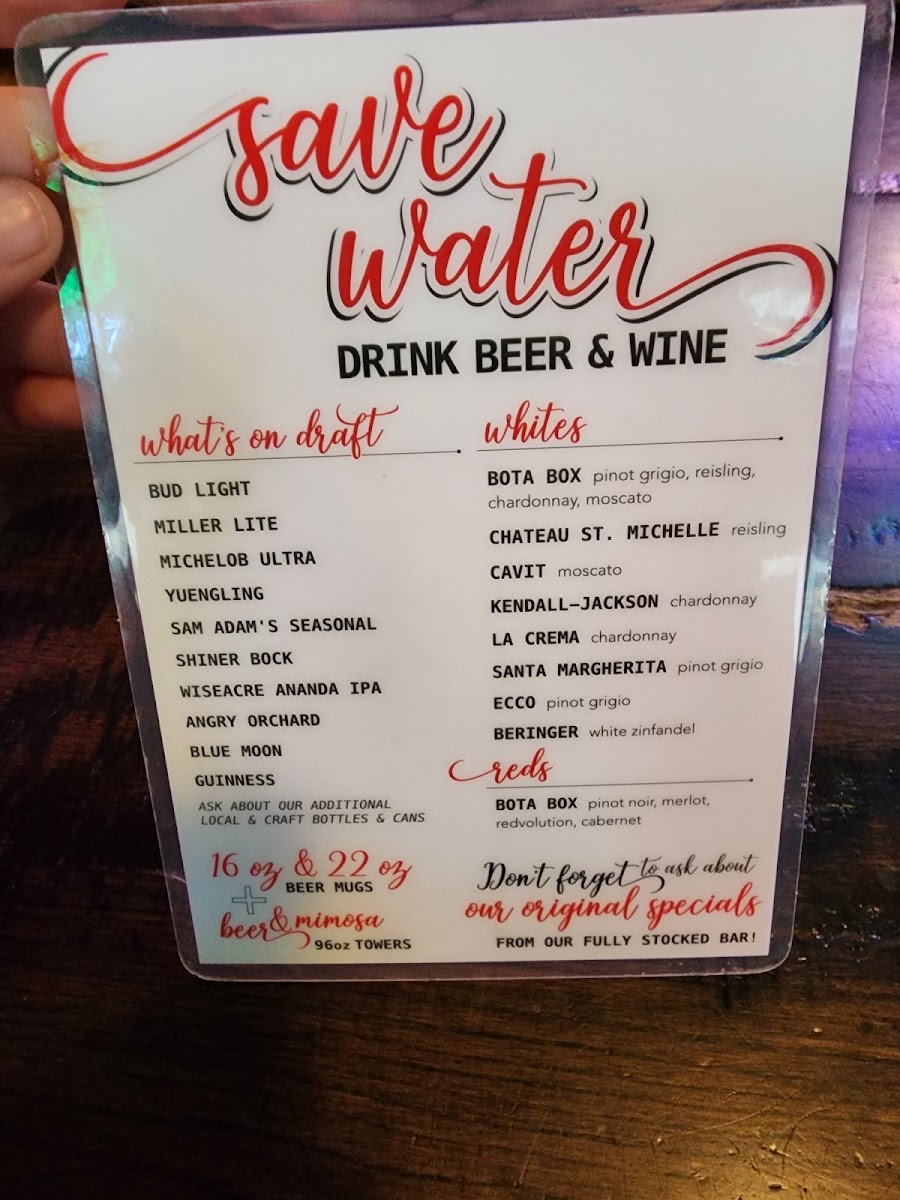 save
water
DRINK BEER & WINE
what's on draft
BUD LIGHT
MILLER LITE
MICHELOB ULTRA
YUENGLING
SAM ADAM'S SEASONAL
SHINER BOCK
WISEACRE ANANDA IPA
ANGRY ORCHARD
BLUE MOON
GUINNESS
ASK ABOUT OUR ADDITIONAL
LOCAL & CRAFT BOTTLES & CANS
16 oz & 22 oz
BEER MUGS
+
beer & mimosa
96oz TOWERS
whites
BOTA BOX pinot grigio, reisling,
chardonnay, moscato
CHATEAU ST. MICHELLE reisling
CAVIT moscato
KENDALL-JACKSON chardonnay
LA CREMA chardonnay
SANTA MARGHERITA pinot grigio
ECCO pinot grigio
BERINGER white zinfandel
reds
BOTA BOX pinot noir, merlot,
redvolution, cabernet
Don't forget to ask about
our original specials
FROM OUR FULLY STOCKED BAR!